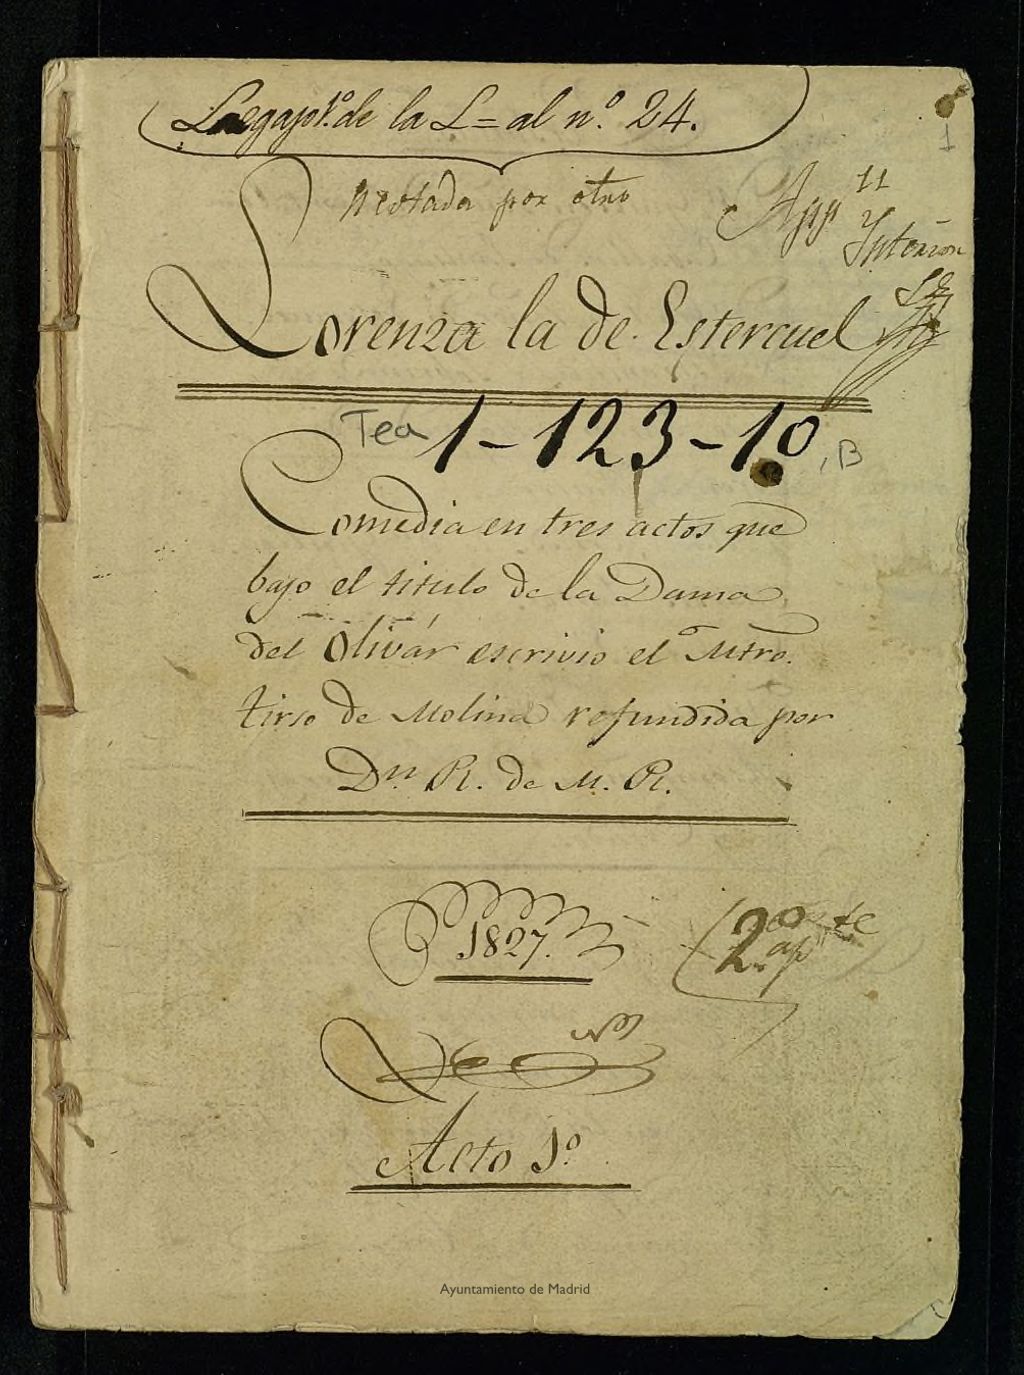 Legajo 1º. de la L = al nº. 24.
Anotada por otro
11
Lorenza la de Estercuel
Tea 1-123-10, B
1
Comedia en tres actos que
bajo el titulo de la Dama
del Olivár escrivio el Mtro.
tirso de Molina refundida por
Dn. R. de M. R.
1827.
2º
Acto 1º
Ayuntamiento de Madrid